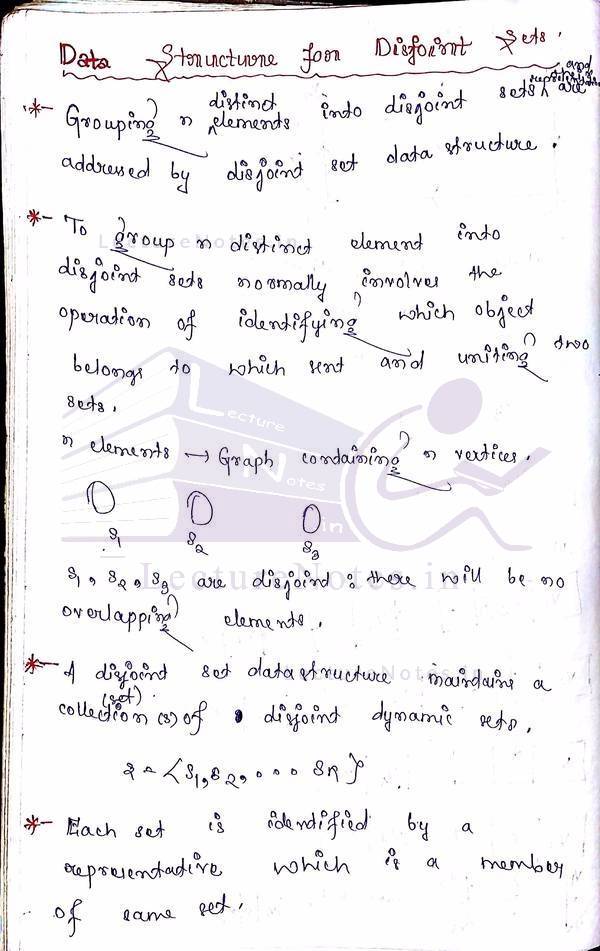 Data Structure for Disjoint Sets.
*- Grouping n distinct elements into disjoint sets and are
addressed by disjoint set data structure.
*- To group n distinct element into
disjoint sets normally involves the
operation of identifying which object
belongs to which sent and uniting two
sets.
n elements → Graph containing n vertices.
S1 S2 S3
S1, S2, S3 are disjoint : there will be no
overlapping elements.
*- A disjoint set datastructure maintains a
collection (s) of disjoint dynamic sets.
(set)
S = {S1, S2, ... Sn}
*- Each set is identified by a
representative which is a member
of same set.
Lecture
Notes
in
LectureNotes.in
LectureNotes.in
LectureNotes.in